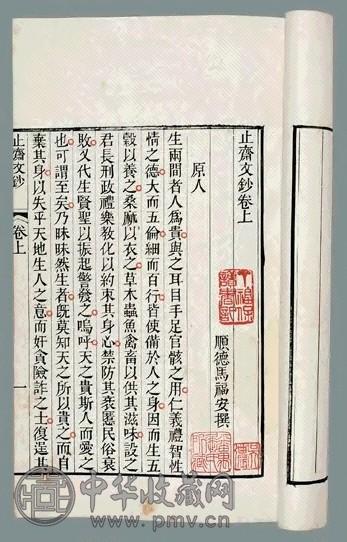 止齋文鈔卷上
順德馬福安撰
原人
生兩間者人爲貴與之耳目手足官骸之用仁義禮智性
情之德大而五倫細而百行皆使備於人之身因而生五
穀以養之桑麻以衣之草木蟲魚禽畜以供其滋味設之
君長刑政禮樂教化以約束其身心禁防其衺慝民俗衰
敗又代生賢聖以振起警發之嗚呼天之貴斯人而愛之
也可謂至矣乃昧昧然生者旣莫知天之所以貴之而自
棄其身以失乎天地生人之意而奸貪險詐之士復逞其
止齋文鈔
卷上
一
中华收藏网
www.pmv.cn